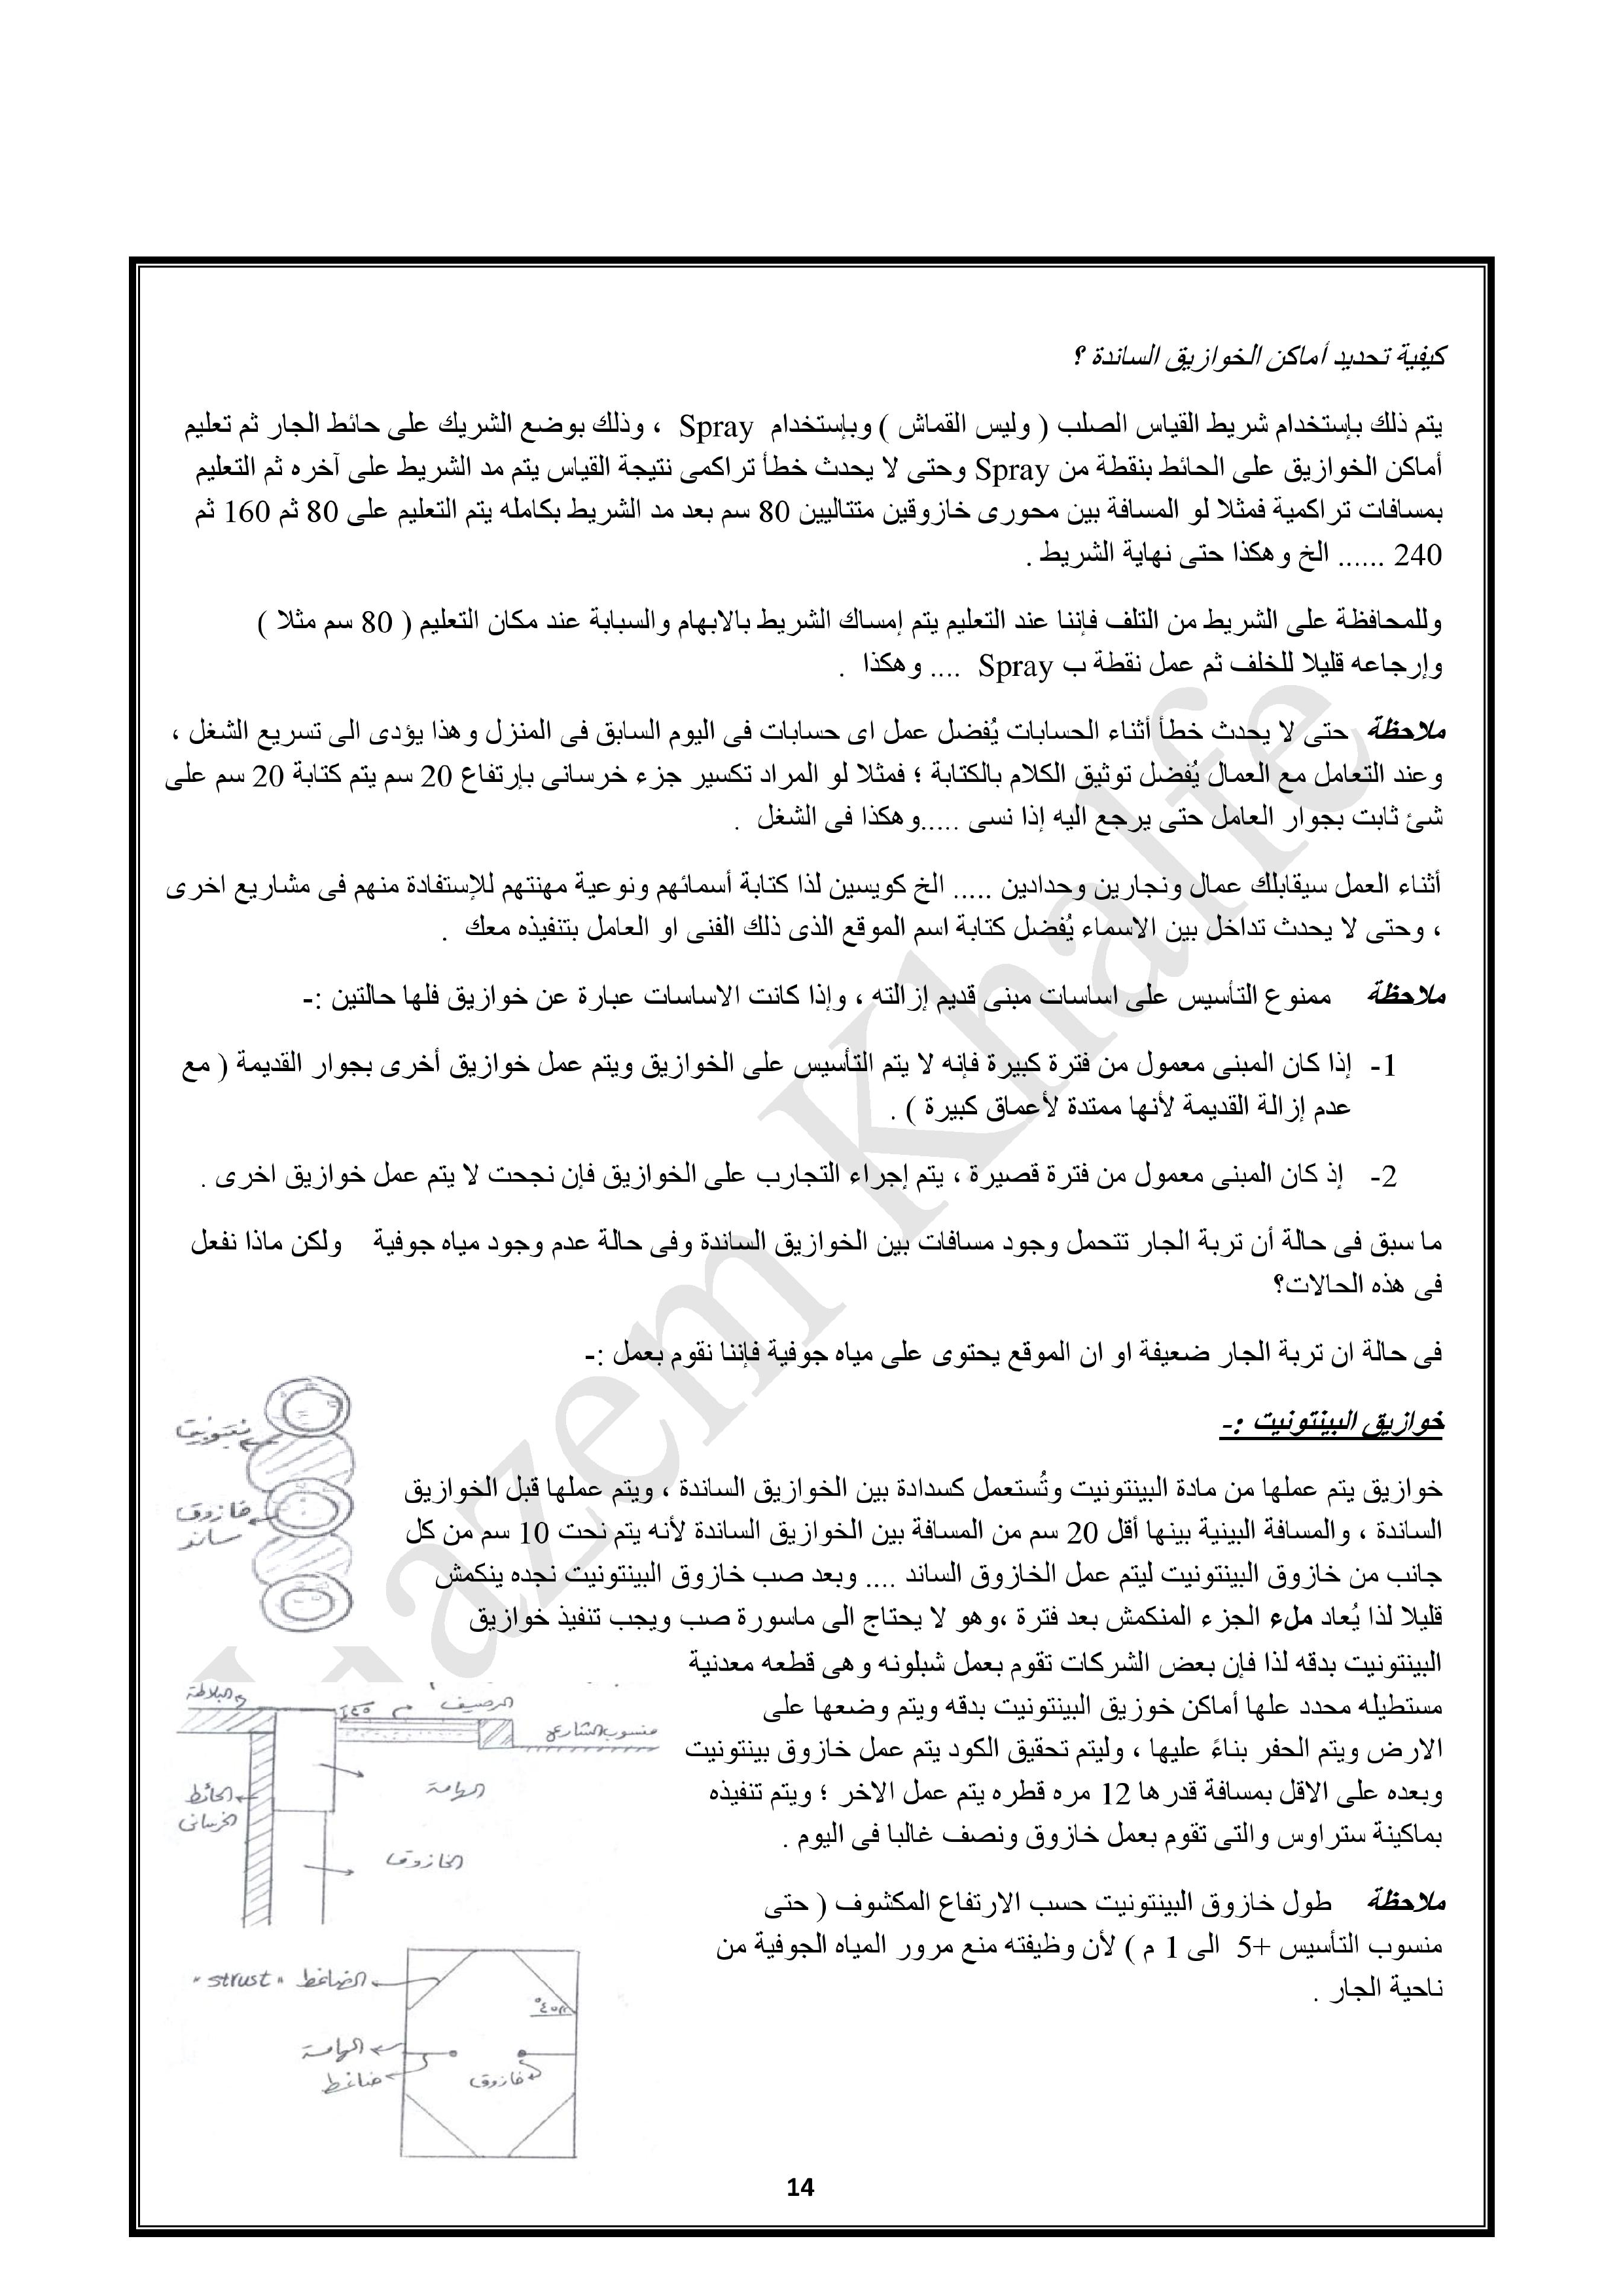 كيفية تحديد أماكن الخوازيق الساندة ؟
يتم ذلك بإستخدام شريط القياس الصلب ( وليس القماش ) وبإستخدام Spray ، وذلك بوضع الشريك على حائط الجار ثم تعليم
أماكن الخوازيق على الحائط بنقطة من Spray وحتى لا يحدث خطأ تراكمى نتيجة القياس يتم مد الشريط على آخره ثم التعليم
بمسافات تراكمية فمثلا لو المسافة بين محورى خازوقين متتاليين 80 سم بعد مد الشريط بكامله يتم التعليم على 80 ثم 160 ثم
240 ...... الخ وهكذا حتى نهاية الشريط .
وللمحافظة على الشريط من التلف فإننا عند التعليم يتم إمساك الشريط بالابهام والسبابة عند مكان التعليم ( 80 سم مثلا )
وإرجاعه قليلا للخلف ثم عمل نقطة ب Spray .... وهكذا .
ملاحظة حتى لا يحدث خطأ أثناء الحسابات يُفضل عمل اى حسابات فى اليوم السابق فى المنزل وهذا يؤدى الى تسريع الشغل ،
وعند التعامل مع العمال يُفضل توثيق الكلام بالكتابة ؛ فمثلا لو المراد تكسير جزء خرسانى بإرتفاع 20 سم يتم كتابة 20 سم على
شئ ثابت بجوار العامل حتى يرجع اليه إذا نسى .....وهكذا فى الشغل .
أثناء العمل سيقابلك عمال ونجارين وحدادين ..... الخ كويسين لذا كتابة أسمائهم ونوعية مهنتهم للإستفادة منهم فى مشاريع اخرى
، وحتى لا يحدث تداخل بين الاسماء يُفضل كتابة اسم الموقع الذى ذلك الفنى او العامل بتنفيذه معك .
ملاحظة ممنوع التأسيس على اساسات مبنى قديم إزالته ، وإذا كانت الاساسات عبارة عن خوازيق فلها حالتين :-
1- إذا كان المبنى معمول من فترة كبيرة فإنه لا يتم التأسيس على الخوازيق ويتم عمل خوازيق أخرى بجوار القديمة ( مع
عدم إزالة القديمة لأنها ممتدة لأعماق كبيرة ) .
2- إذ كان المبنى معمول من فترة قصيرة ، يتم إجراء التجارب على الخوازيق فإن نجحت لا يتم عمل خوازيق اخرى .
ما سبق فى حالة أن تربة الجار تتحمل وجود مسافات بين الخوازيق الساندة وفى حالة عدم وجود مياه جوفية ولكن ماذا نفعل
فى هذه الحالات؟
فى حالة ان تربة الجار ضعيفة او ان الموقع يحتوى على مياه جوفية فإننا نقوم بعمل :-
خوازيق البينتونيت :-
خوازيق يتم عملها من مادة البينتونيت وتُستعمل كسدادة بين الخوازيق الساندة ، ويتم عملها قبل الخوازيق
الساندة ، والمسافة البينية بينها أقل 20 سم من المسافة بين الخوازيق الساندة لأنه يتم نحت 10 سم من كل
جانب من خازوق البينتونيت ليتم عمل الخازوق الساند .... وبعد صب خازوق البينتونيت نجده ينكمش
قليلا لذا يُعاد ملء الجزء المنكمش بعد فترة ،وهو لا يحتاج الى ماسورة صب ويجب تنفيذ خوازيق
البينتونيت بدقه لذا فإن بعض الشركات تقوم بعمل شبلونه وهى قطعه معدنية
مستطيله محدد علها أماكن خوزيق البينتونيت بدقه ويتم وضعها على
الارض ويتم الحفر بناءً عليها ، وليتم تحقيق الكود يتم عمل خازوق بينتونيت
وبعده على الاقل بمسافة قدرها 12 مره قطره يتم عمل الاخر ؛ ويتم تنفيذه
بماكينة ستراوس والتى تقوم بعمل خازوق ونصف غالبا فى اليوم .
ملاحظة طول خازوق البينتونيت حسب الارتفاع المكشوف ( حتى
منسوب التأسيس +5 الى 1 م ) لأن وظيفته منع مرور المياه الجوفية من
ناحية الجار .
خازوق
ساند
البلاطة
الرصيف
منسوب الشارع
الهامة
الحائط
الخرسانى
الخازوق
الضاغط "strust"
٤٥°
الهامة
ضاغط
خازوق
14
Kazem Khalfe